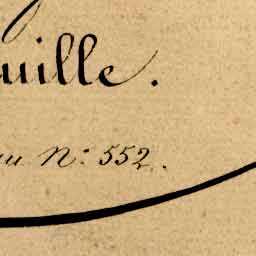 uille.
au N° 552.